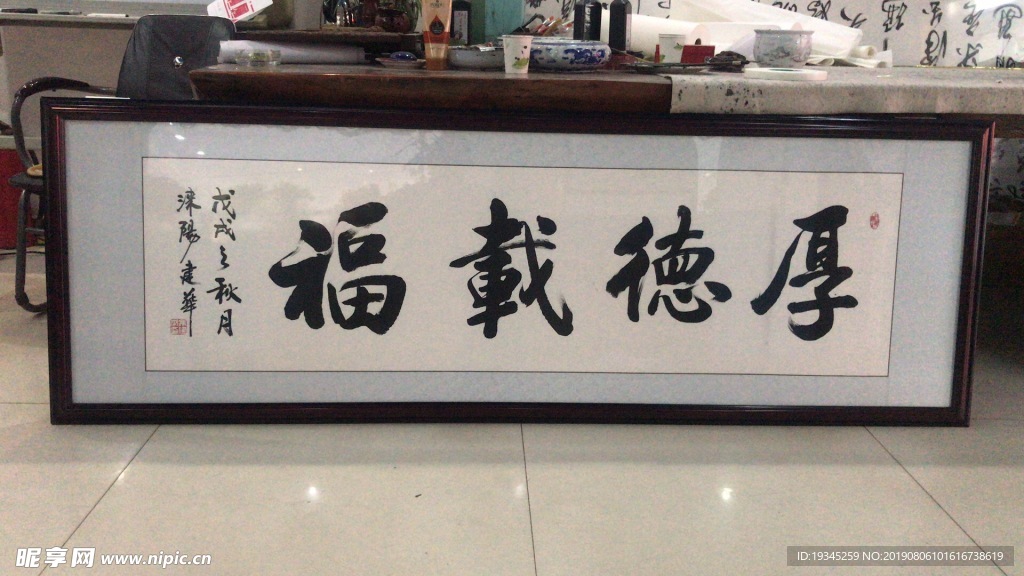 厚德載福
戊戌之秋月
涞陽建華
昵享网 www.nipic.cn
ID:19345259 NO:20190806101616738619